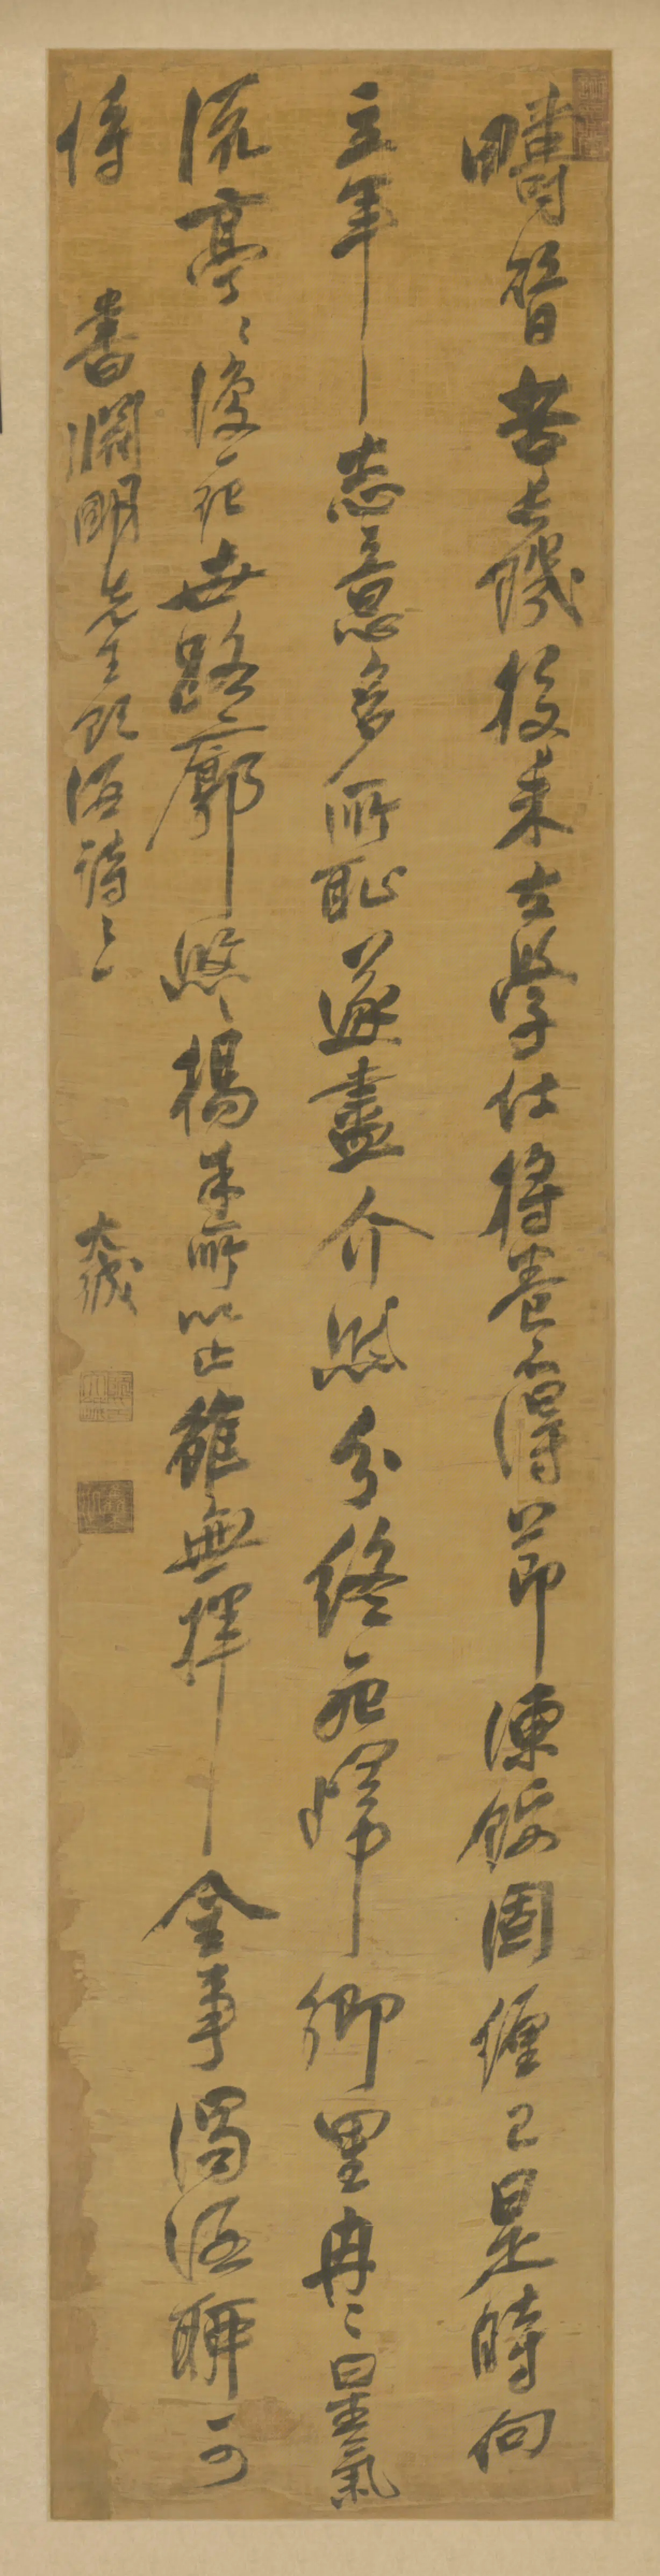 疇昔苦長饑投耒去學仕將養不得節凍餒固纏己是時向
立年志意多所恥遂盡介然分終死歸鄉里冉〻星氣
流亭〻復一紀世路廓悠〻楊朱所以止雖無揮金事濁酒聊可
恃 書淵明先生飲酒詩之一 大鋮